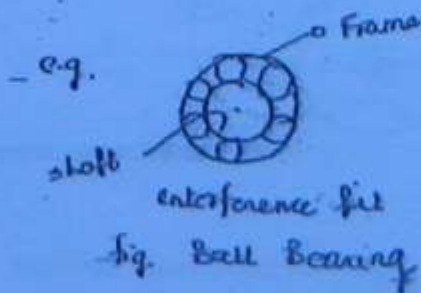 o Frame
- e.g.
shaft
interference fit
fig. Ball Bearing